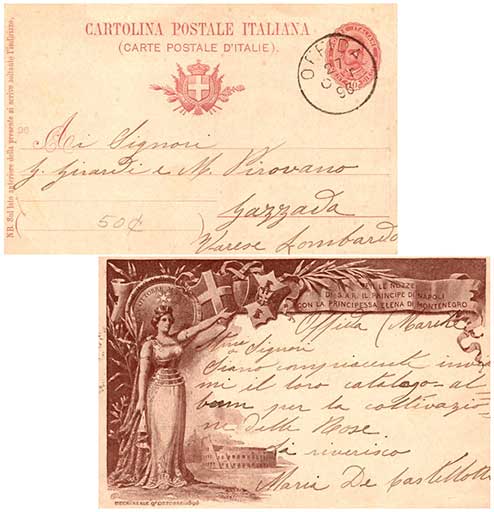 CARTOLINA POSTALE ITALIANA
(CARTE POSTALE D'ITALIE).
OFFIDA
NB. Sul lato anteriore della presente si scrive soltanto l'indirizzo.
96
Ai Signori
G. Girardi e M. Pirovano
50¢
Gazzada
Varese Lombardo
PER LE NOZZE
DI S.A.R. IL PRINCIPE DI NAPOLI
CON LA PRINCIPESSA ELENA DI MONTENEGRO
Offida (Marche
Signori
Siano compiacente invi
mi il loro catalogo al
per la coltivazio
ne delle Rose.
riverisco
Maria De Castellotti